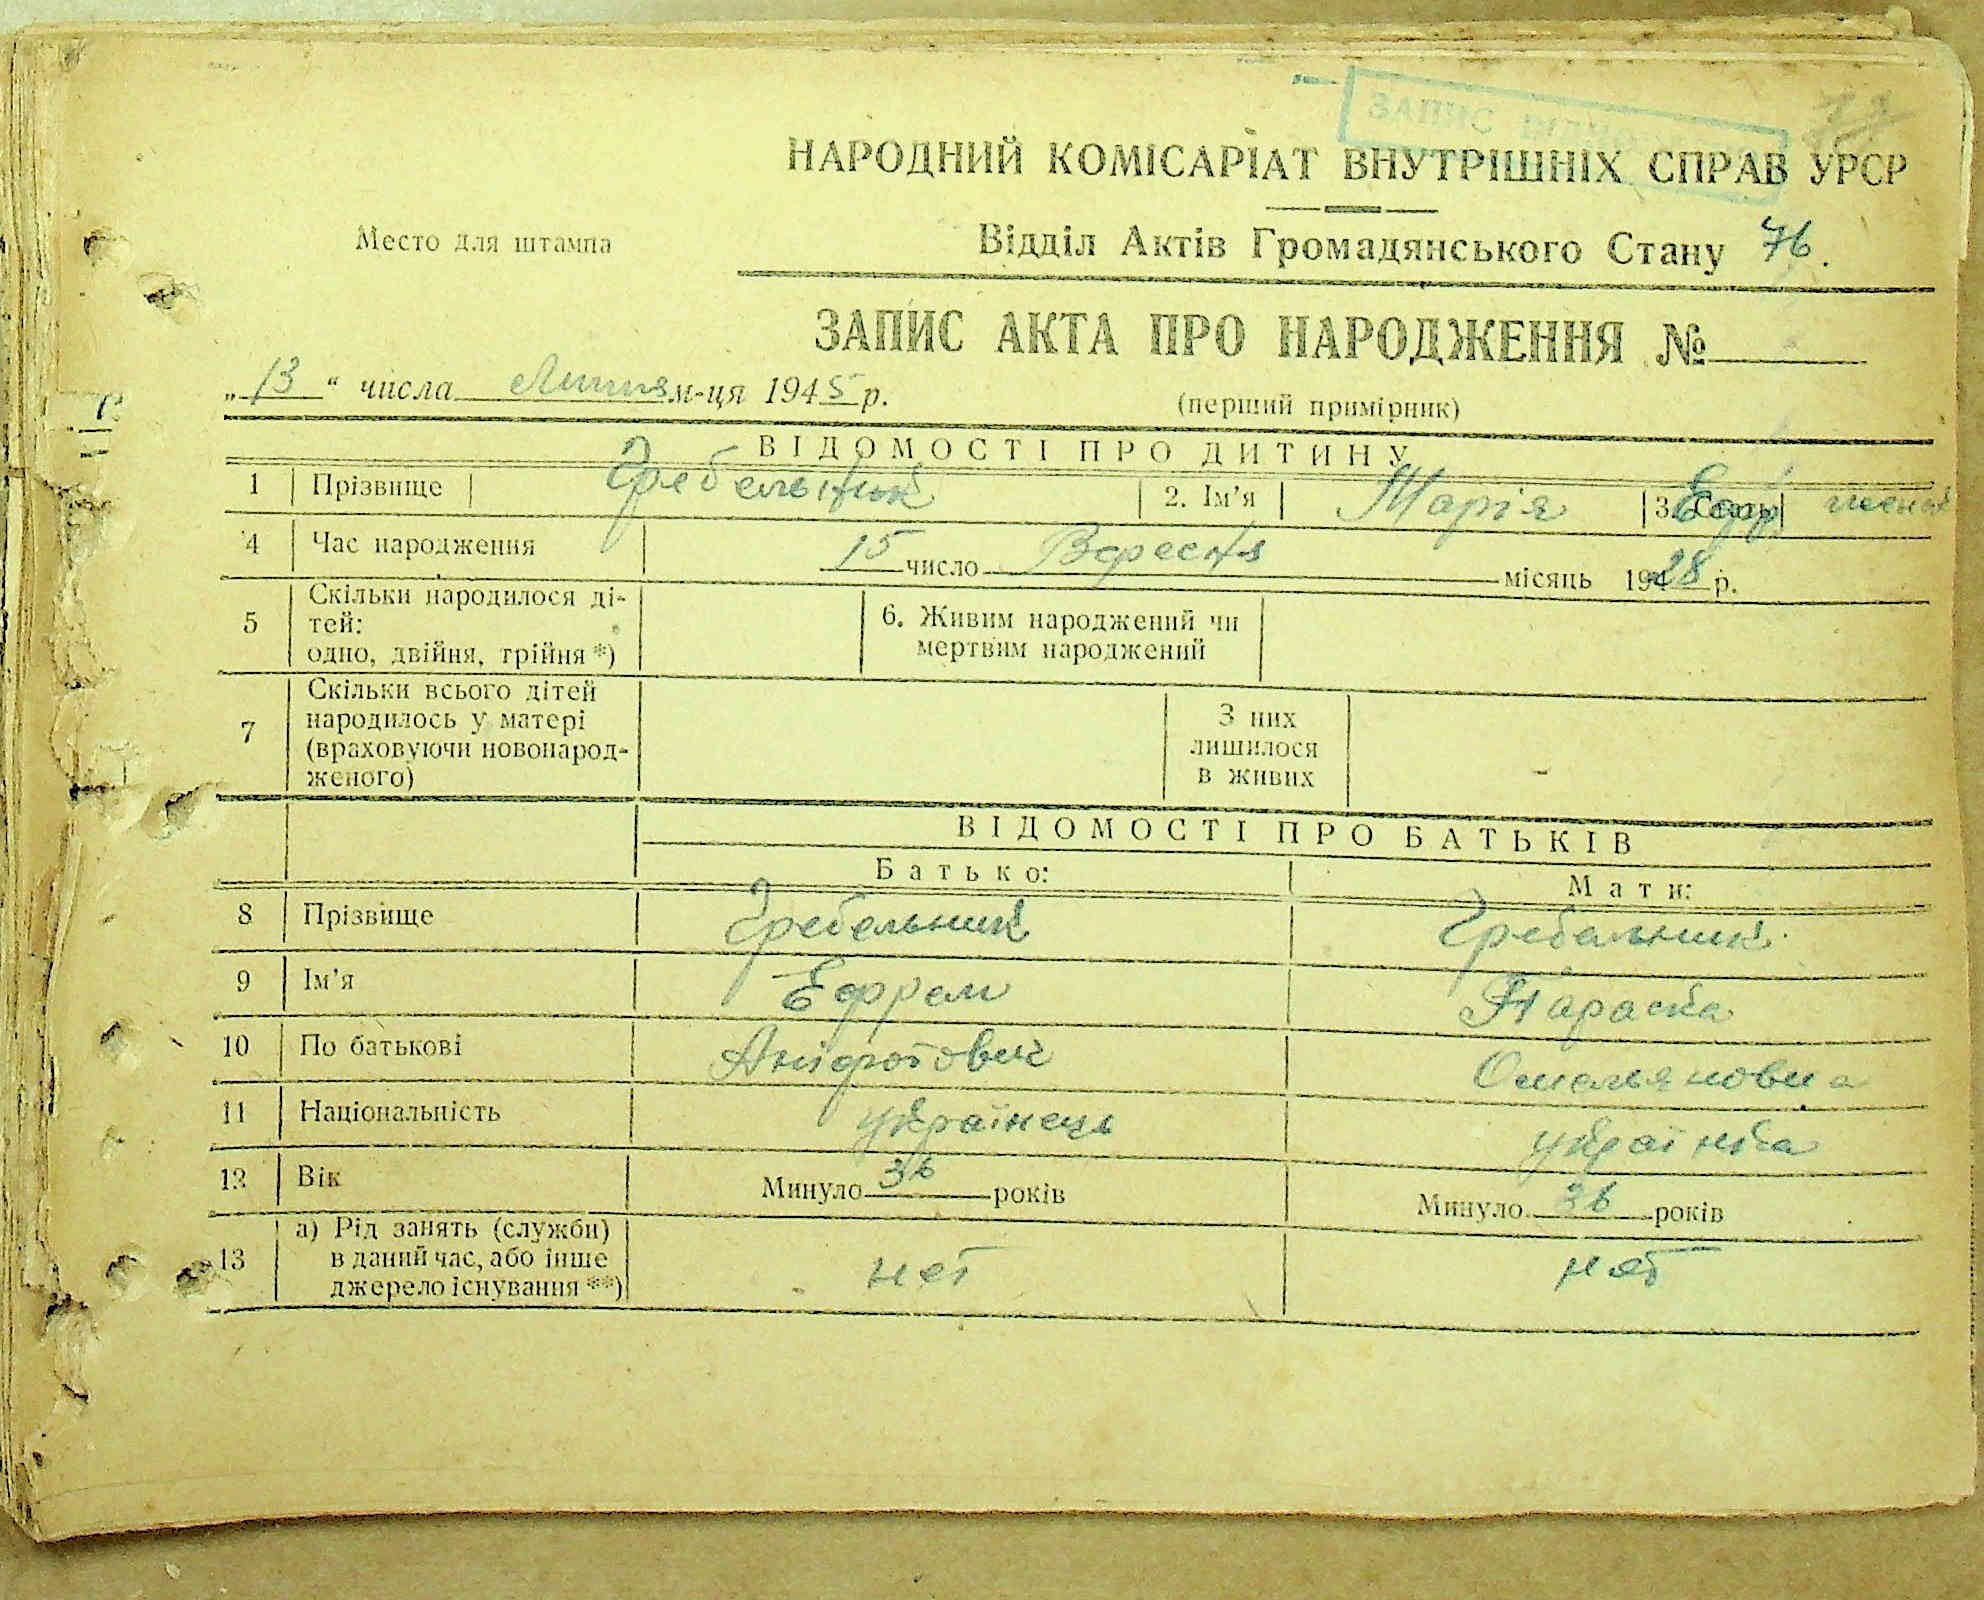 ЗАПИС
77
НАРОДНИЙ КОМІСАРІАТ ВНУТРІШНІХ СПРАВ УРСР
Место для штампа
Відділ Актів Громадянського Стану 76.
ЗАПИС АКТА ПРО НАРОДЖЕННЯ №
„13“ числа Липня м-ця 1945 р.
(перший примірник)
ВІДОМОСТІ ПРО ДИТИНУ
1 Прізвище Гребельник 2. Ім’я Марія Ефр 3. Стать жень
4 Час народження 15 число Вересня місяць 1928 р.
5 Скільки народилося ді-
тей:
одно, двійня, трійня *)
6. Живим народжений чи
мертвим народжений
7 Скільки всього дітей
народилось у матері
(враховуючи новонарод-
женого)
З них
лишилося
в живих
ВІДОМОСТІ ПРО БАТЬКІВ
Батько: Мати:
8 Прізвище Гребельник Гребельник
9 Ім’я Ефрем Параска
10 По батькові Аніфотович Омельяновна
11 Національність українець українка
12 Вік Минуло 36 років Минуло 36 років
13 а) Рід занять (служби)
в даний час, або інше
джерело існування **)
нет нет